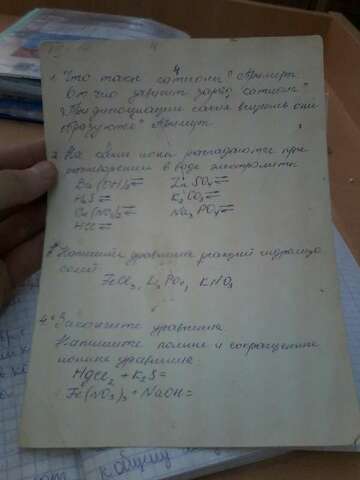 4
1. Что такое катионы? Пример.
От чего зависит заряд катиона?
При диссоциации каких веществ они
образуются? Пример.
2. На какие ионы распадаются при
растворении в воде электролиты
Ba(OH)₂⇌ ZnSO₄⇌
H₂S⇌ K₂CO₃⇌
Cu(NO₃)₂⇌ Na₃PO₄⇌
HCl⇌
3. Напишите уравнения реакций гидролиза
солей
FeCl₃, Li₃PO₄, KNO₃
4. Закончите уравнения.
Напишите полные и сокращенные
ионные уравнения:
HgCl₂ + K₂S =
Fe(NO₃)₃ + NaOH =
к общему